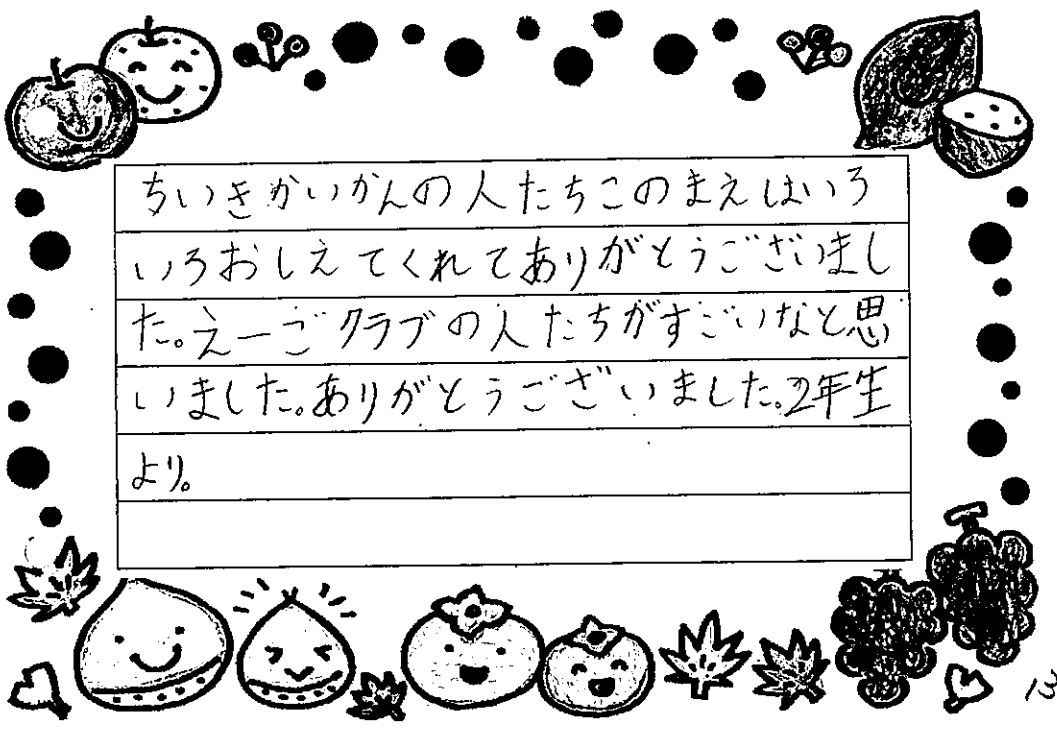 ちいきかいかんの人たちこのまえはいろ
いろおしえてくれてありがとうございまし
た。えーごクラブの人たちがすごいなと思
いました。ありがとうございました。2年生
より。
13